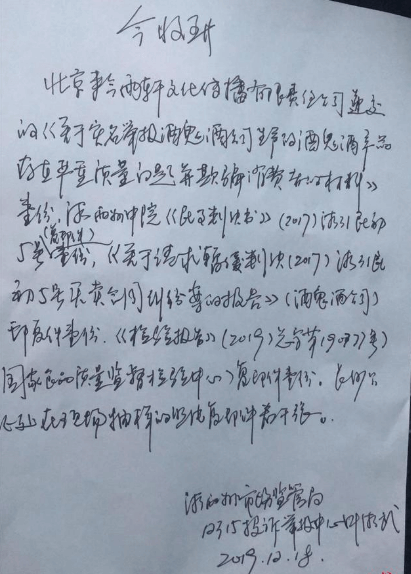 今收到
北京来今雨轩文化传播有限责任公司递交
的《关于实名举报酒鬼酒公司生产的酒鬼酒产品
存在严重质量问题并欺骗消费者的材料》
壹份，湘西州中院《民事判决书》(2017)湘31民初
5号(复印件)壹份，《关于请求暂缓判决(2017)湘31民
初5号买卖合同纠纷案的报告》(酒鬼酒公司)
印复件壹份，《检验报告》(2019)
国家食品质量监督检验中心)复印件壹份。
在现场抽样的照片复印件若干张。
湘西州市场监管局
12315投诉举报中心
2019.12.18.